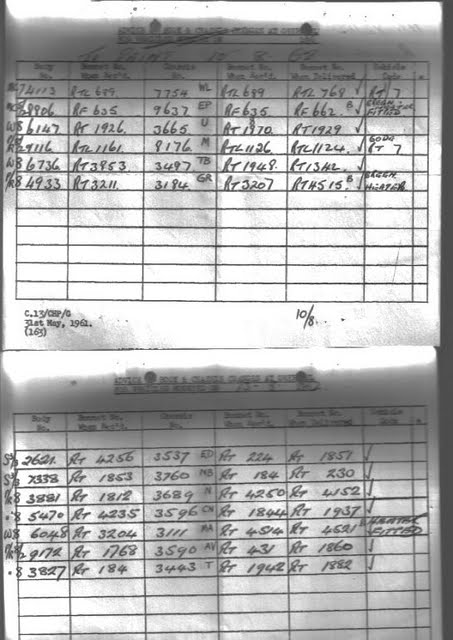 ADVICE BODY & CHASSIS CHANGES AT
10 8
Body Bonnet No. Chassis Bonnet No. Bonnet No. Vehicle
No. When Rec'd. No. When Rec'd. When Delivered Code
74113 RTL 689 7754 WL RTL 689 RTL 768 RT 7
8906 RF 635 9637 EP RF 635 RF 662 B FITTED
W8 6147 RT 1926 3665 U RT 1970 RT 1929
9116 RTL 1161 8176 M RTL 1126 RTL 1124 RT 7
W8 6736 RT 3953 3497 TB RT 1948 RT 1342
4933 RT 3211 3184 GR RT 3207 RT 4515 B GREEN
HEATER
C.13/CHP/G
31st May, 1961.
(165)
10/8.
ADVICE BODY & CHASSIS CHANGES AT
Body Bonnet No. Chassis Bonnet No. Bonnet No. Vehicle
No. When Rec'd. No. When Rec'd. When Delivered Code
2621 RT 4256 3537 ED RT 224 RT 1857
7338 RT 1853 3760 NB RT 184 RT 230
3881 RT 1812 3689 N RT 4250 RT 4152
8 5470 RT 4235 3596 CN RT 1844 RT 1937
W8 6048 RT 3204 3111 MA RT 4514 RT 4521 HEATER
FITTED
9172 RT 1768 3590 AV RT 431 RT 1860
8 3827 RT 184 3443 T RT 1942 RT 1882